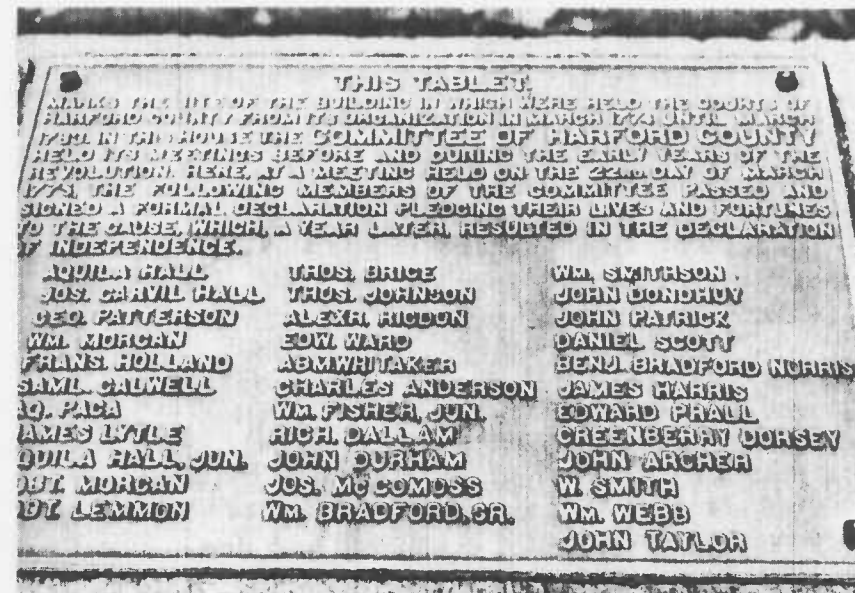 THIS TABLET.
MARKS THE SITE OF THE BUILDING IN WHICH WERE HELD THE COURTS OF
HARFORD COUNTY FROM ITS ORGANIZATION IN MARCH 1774 UNTIL MARCH
1783. IN THIS HOUSE THE COMMITTEE OF HARFORD COUNTY
HELD ITS MEETINGS BEFORE AND DURING THE EARLY YEARS OF THE
REVOLUTION. HERE, AT A MEETING HELD ON THE 22ND. DAY OF MARCH
1775, THE FOLLOWING MEMBERS OF THE COMMITTEE PASSED AND
SIGNED A FORMAL DECLARATION PLEDGING THEIR LIVES AND FORTUNES
TO THE CAUSE, WHICH, A YEAR LATER, RESULTED IN THE DECLARATION
OF INDEPENDENCE.
AQUILA HALL
JOS. CARVIL HALL
GEO. PATTERSON
WM. MORGAN
FRANS. HOLLAND
SAML. CALWELL
AQ. PACA
JAMES LYTLE
AQUILA HALL, JUN.
OBT. MORGAN
OBT. LEMMON
THOS. BRICE
THOS. JOHNSON
ALEXR. RIGDON
EDW. WARD
ABM WHITAKER
CHARLES ANDERSON
WM. FISHER, JUN.
RICH. DALLAM
JOHN DURHAM
JOS. MCCOMOSS
WM. BRADFORD, SR.
WM. SMITHSON
JOHN DONOHUY
JOHN PATRICK
DANIEL SCOTT
BENJ. BRADFORD NORRIS
JAMES HARRIS
EDWARD PRALL
GREENBERRY DORSEY
JOHN ARCHER
W. SMITH
WM. WEBB
JOHN TAYLOR